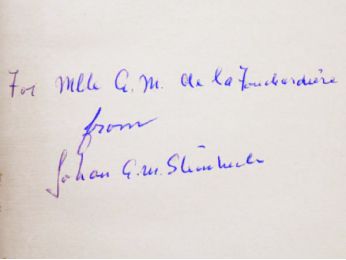 For Mlle G. M. de la Fouchardière
from
Johan G. M.